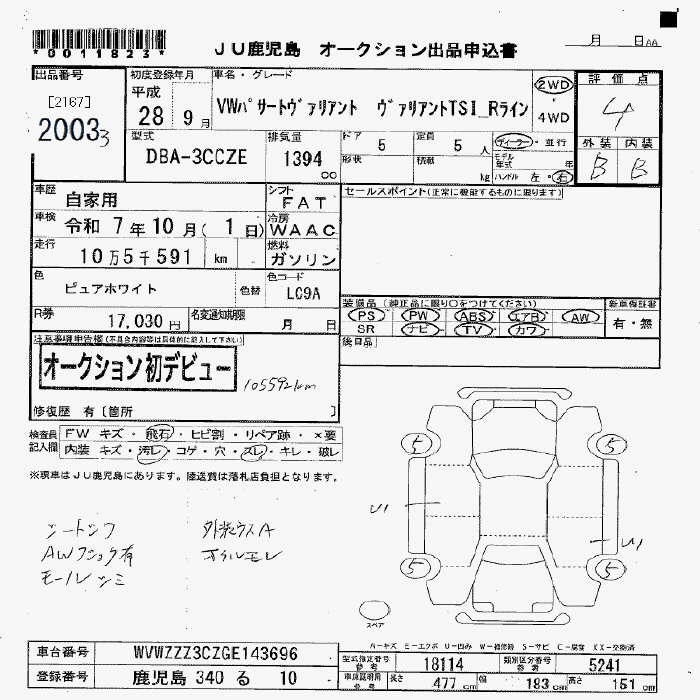 *0011823*
JU鹿児島 オークション出品申込書
月 日AA
出品番号
[2167]
20033
初度登録年月
平成
28 9月
車名・グレード
VWパサートヴァリアント ヴァリアントTSI_Rライン
2WD
・
4WD
評価点
4
外装 内装
B B
型式
DBA-3CCZE
排気量
1394
cc
ドア
5
定員
5 人
形状
積載
kg
ディーラー・並行
モデル年式 年
ハンドル 左・右
車歴
自家用
シフト
FAT
車検
令和 7年10月(1日)
冷房
WAAC
走行
10万5千591 km
燃料
ガソリン
色
ピュアホワイト
色替
色コード
LC9A
R券
17,030円
名変通知期限
月 日
セールスポイント(正常に機能するものに限ります)
装備品(純正品に限り○をつけてください)
PS PW ABS エアB AW
SR ナビ TV カワ
新車保証書
有・無
後日品
注意事項申告欄(不具合内容等は具体的に記入して下さい)
オークション初デビュー
105592km
修復歴 有〔箇所 〕
検査員記入欄
FW キズ・飛石・ヒビ割・リペア跡・×要
内装 キズ・汚レ・コゲ・穴・スレ・キレ・破レ
※現車はJU鹿児島にあります。陸送費は落札店負担となります。
AWフニック有
モールシミ
5 5
U1 U1
5 5
スペア
A-キズ E-エクボ U-凹み W-補修跡 S-サビ C-腐食 XX-交換済
車台番号 WVWZZZ3CZGE143696
登録番号 鹿児島 340 る 10
型式指定番号 参考 18114
類別区分番号 参考 5241
車庫証明用 参考 長さ 477cm 幅 183cm 高さ 151cm